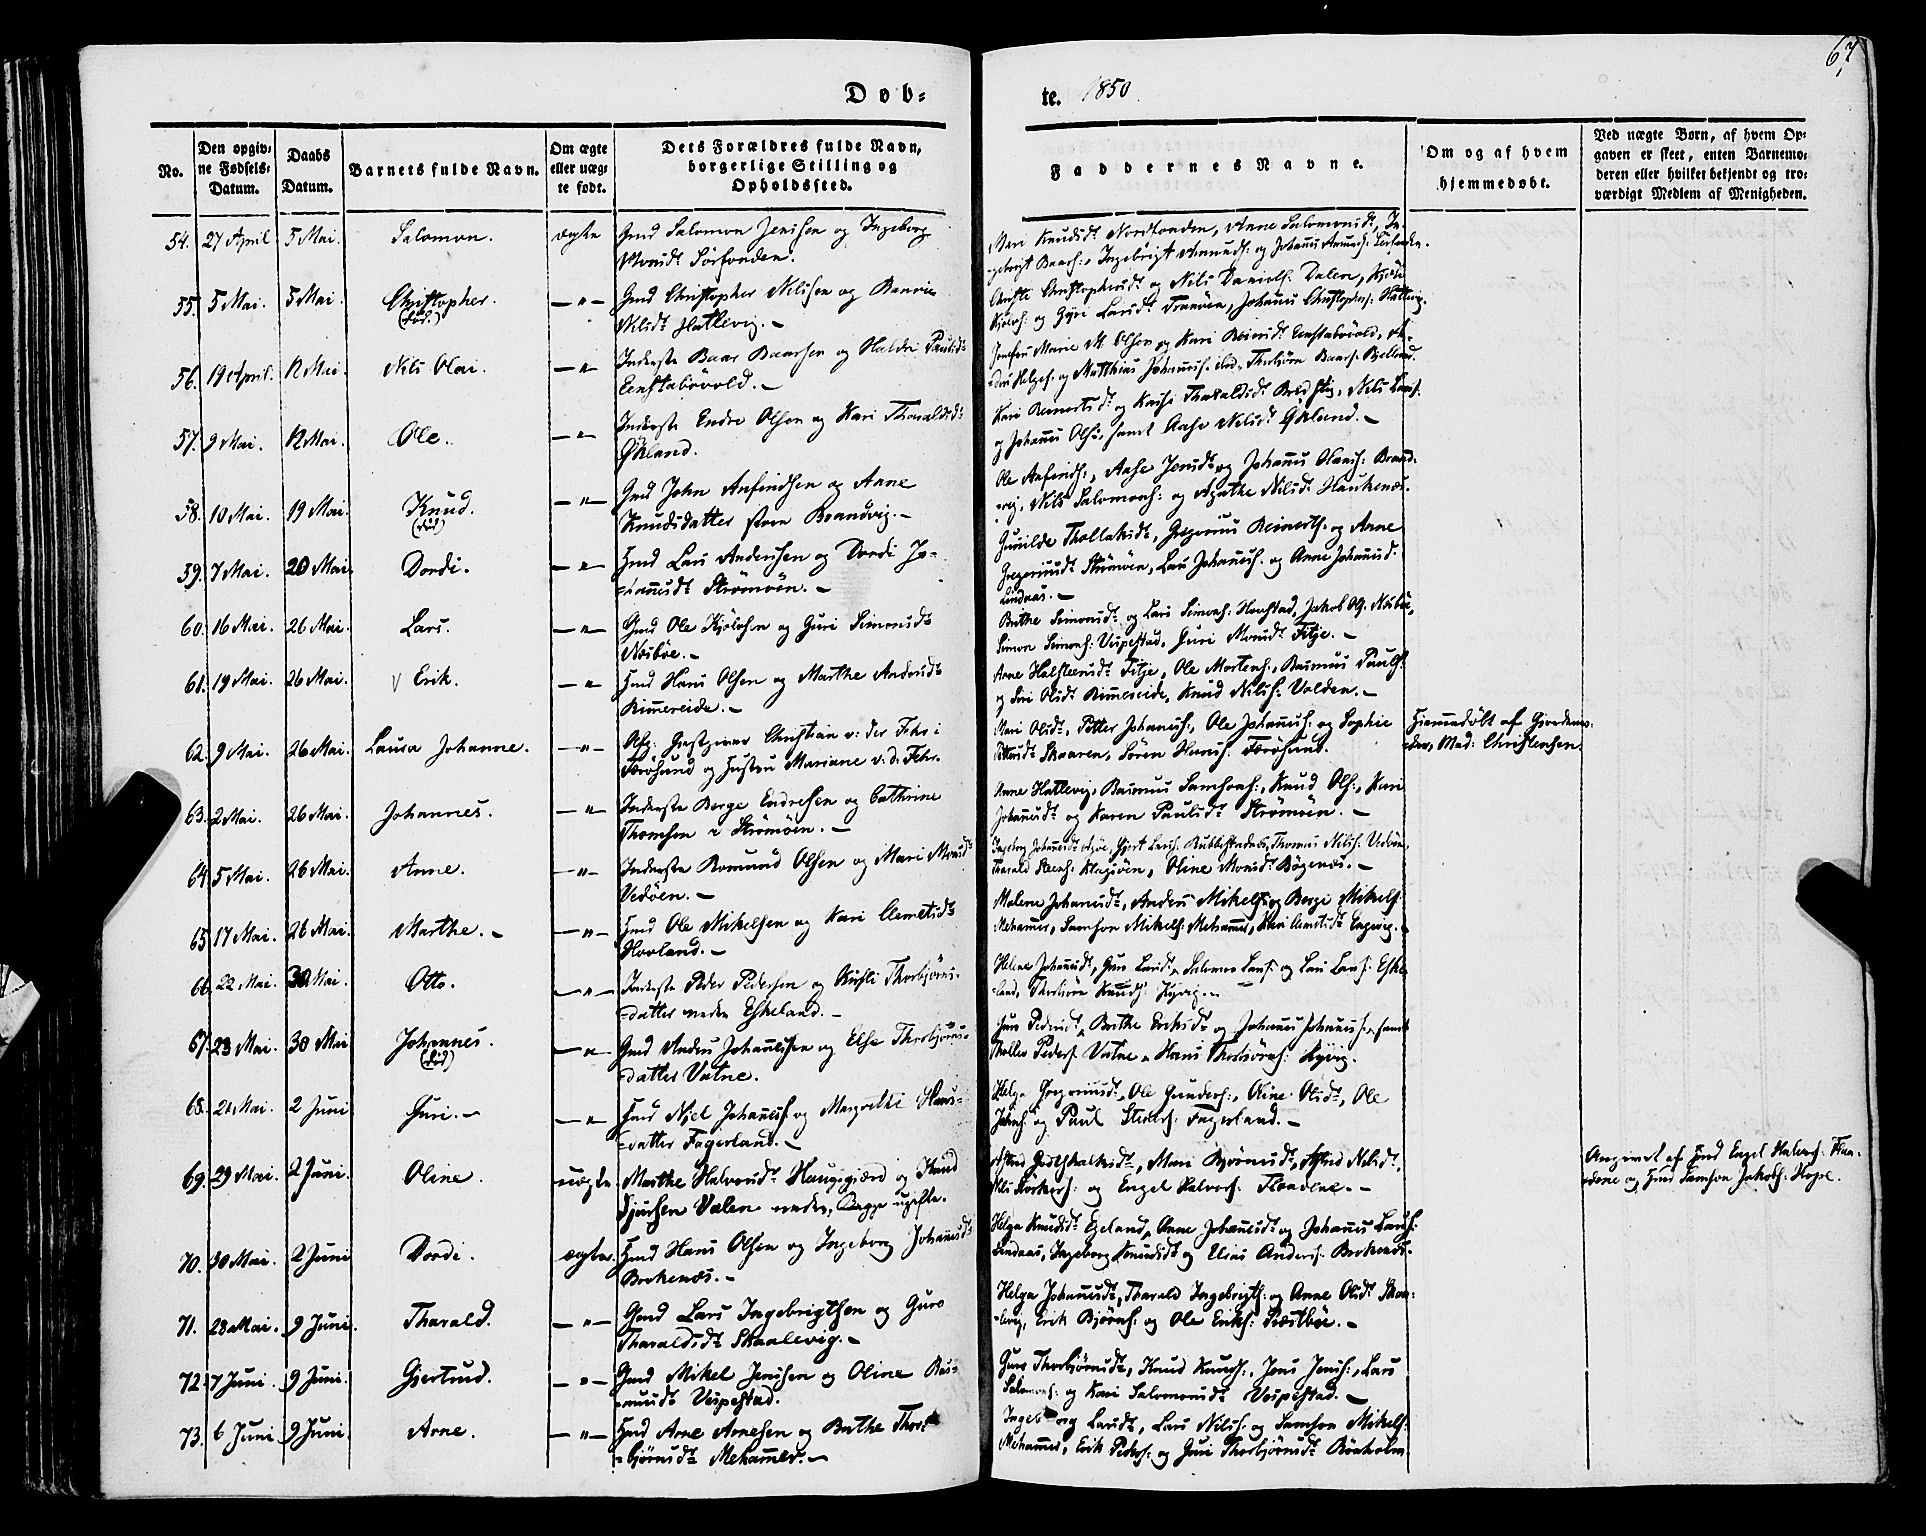 67
Døb=
te. 1850
No.
Den opgiv=
ne Fødsels=
Datum.
Daabs
Datum.
Barnets fulde Navn.
Om ægte
eller uæg=
te født.
Dets Forældres fulde Navn,
borgerlige Stilling og
Opholdssted.
Faddernes Navne.
Om og af hvem
hjemmedøbt.
Ved uægte Børn, af hvem Op=
gaven er skeet, enten Barnemo=
deren eller hvilket bekjendt og tro=
værdigt Medlem af Menigheden.
54. 27 April 5 Mai. Salomon. ægte Gmd Salomon Jensen og Ingeborg
Sørfonden.
Mari Knudsdt Nordfonden, Anne Salomonsdt, In-
gebrigt Baars:, Ingebrigt Amunds: og Johannes Amunds: Sørfonden.
55. 5 Mai. 5 Mai. Christopher. — " — Gmd Christopher Nilssen og
(død.)
Nilsdt Hatlevig. —
Christophersdt og Nils Daniels: Dalen,
og Gyri Larsdt Johannes Christophers: Hatlevig.
56. 19 April. 12 Mai. Nils Olai. — " — Inderste Baar Baarsen og Haldri Paulsdt
Eenstabövold. —
Jomfru Marie M. Olsen og Kari Eenstabövold,
Helges: og Matthias Johannes: Thorbjörn Baars:
57. 9 Mai. 12 Mai. Ole. — " — Inderste Endre Olsen og Kari Tharaldsdt
Økland.
Kari og Tharaldsdt Nils Lars:
og Johannes Ols:, samt Aase Nilsdt Økland. —
58. 10 Mai. 19 Mai. Knud. — " — Gmd John Anfindsen og Anne
(død)
Knudsdatter store Brandvig. —
Ole Anfinds:, Aase Jensdt og Johannes Olaus: Brand-
vig, Nils Salomons: og Agathe Nilsdt Haukenæs.
59. 7 Mai. 20 Mai. Dordi. — " — Hmd Lars Andersen og Dordi Jo-
hannesdt Strömöen. —
Gunilde Thollaksdt, Gregorius Reinerts: og Anne
Gregoriusdt Strömöen, Lars Johannes: og Anne Johannesdt
Lindaas. —
60. 16 Mai. 26 Mai. Lars. — " — Gmd Ole Kjölvsen og Guri Simonsdt
Næsböe. —
Brithe Simonsdt og Lars Simons: Jakob Ols. Næsböe,
Simon Simons: Vespestad, Guri Monsdt Fitje. —
61. 19 Mai. 26 Mai. v Erik. — " Hmd Hans Olsen og Marthe Andersdt
Rimereide. —
Anne Halsteensdt Fitje, Ole Mortens:, Rasmus Pauls:
og Siri Olsdt Rimereide, Knud Nils: Valden. —
62. 9 Mai. 26 Mai. Laura Johanne. — " — Gestgiver Christian v: der Fehr i
Töröhund og Hustru Mariane v. d. Fehr.
Mari Olsdt, Petter Johannes:, Ole Johannes: og Sophie
Skaaren, Sören Hans:
Hjemmedöbt af Gjordemo-
der, Mad: Christensen.
63. 2 Mai. 26 Mai. Johannes. — " — Inderste Berge Endresen og Cathrine
Thomsen i Strömöen. —
Anne Hatlevig, Rasmus Samsons:, Knud Ols:, Kari
Johannesdt og Karen Paulsdt Strömöen. —
64. 5 Mai. 26 Mai. Anne. — " — Inderste Romund Olsen og Mari Monsdt
Vedöen. —
Ingeborg Johannesdt Gjert Lars: Thomas Nils: Vedöen,
Tharald Oline Monsdt Bögenæs. —
65 17 Mai. 26 Mai. Marthe. — — " — Hmd Ole Mikelsen og Kari Clemetsdt
Hovland. —
Malene Johannesdt, Anders Mikels: og Berge Mikels:
Mehammer, Samson Mikels: Mehammer, Mari Clemetsdt Engevig. —
66. 22 Mai. 30 Mai. Otto. — " — Inderste Peder Pedersen og Thorbjörns-
datter nedre Eskeland. —
Helene Johannesdt, Guro Larsdt, Salomon Lars: og Lars Lars: Eske-
land, Knuds: Kyvig. —
67. 23 Mai. 30 Mai Johannes. — " — Gmd Anders Johannessen og Else Thorbjörns-
(død)
datter Vatne.
Guro Pedersdt, Brithe Eriksdt og Johannes Johannes:, samt
Tholles Peders: Vatne, Hans Thorbjörns: Kyvig.
68. 21 Mai. 2 Juni Guri. — — " Hmd Niels Johannes: og Margrethe Hans-
datter Fagerland. —
Helga Gregoriusdt, Ole Gunders:, Oline Olsdt, Ole
Johns: og Paul Fagerland. —
69. 29 Mai. 2 Juni. Oline. uægte. Marthe Halvorsdt Haugegjærd og Knud
Sjursen Valen nedre, Begge ugifte.
Mari Björnsdt, Astrid Nilsdt,
Nils og Engel Halvors: Flaadene. —
Angivet af Hmd Engel Halvors: Flaa-
dene og Hmd Samson Jakobs: Hope.
70. 30 Mai. 2 Juni Dordi. ægte. Hmd Hans Olsen og Ingeborg Johannesdt
Brekenæs. —
Helga Knudsdt Egeland, Anne Johannesdt og Johannes Lars:
Lindaas, Ingeborg Knudsdt og Elias Anders: Brekenæs.
71. 28 Mai. 9 Juni. Tharald. — " — Gmd Lars Ingebrigtsen og Guro
Tharaldsdt Skaalevig. —
Helga Johannesdt, Tharald Ingebrigts: og Anne Olsdt Skaa-
levig, Erik Bjørns: og Ole Eriks: Præstböe. —
72. 7 Juni. 9 Juni. Gjertrud. — " — Gmd Mikel Jensen og Oline Ras-
musdt Vespestad.
Guro Thorbjörnsdt, Knud Knuds:, Jens Jens:, Lars
Salomons: og Kari Salomonsdt Vespestad. —
73. 6 Juni 9 Juni. Arne. — " — Hmd Arne Arnesen og Brithe Thor-
björnsdt Mehammer. —
Ingeborg Larsdt, Lars Nils: og Samson Mikels:
Mehammer, Erik Peders: og Guri Thorbjörnsdt Rönholm.